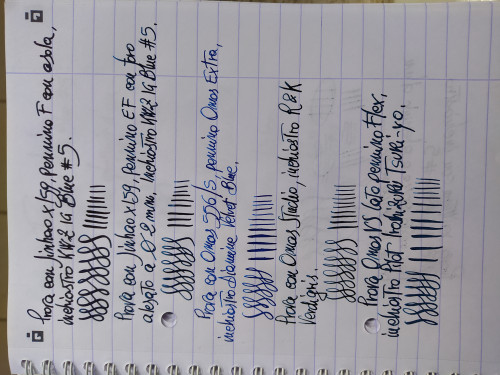 Prova con Jinhao x159, pennino F con asola,
inchiostro KWZ IG Blue #5.
Prova con Jinhao x159, pennino EF con foro
alesato a mm, inchiostro KWZ IG Blue #5.
Prova con Omas 556/S, pennino Omas Extra,
inchiostro diamine Velvet Blue.
Prova con Omas Studio, inchiostro R&K
Verdigris.
Prova Omas pennino Flex,
inchiostro Pilot Tsuki-yo.